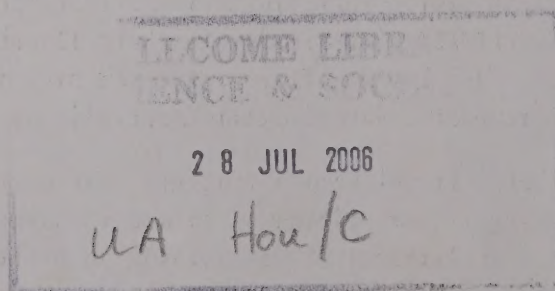 LLCOME LIBR
IENCE & SOC
2 8 JUL 2006
UA Hou/C